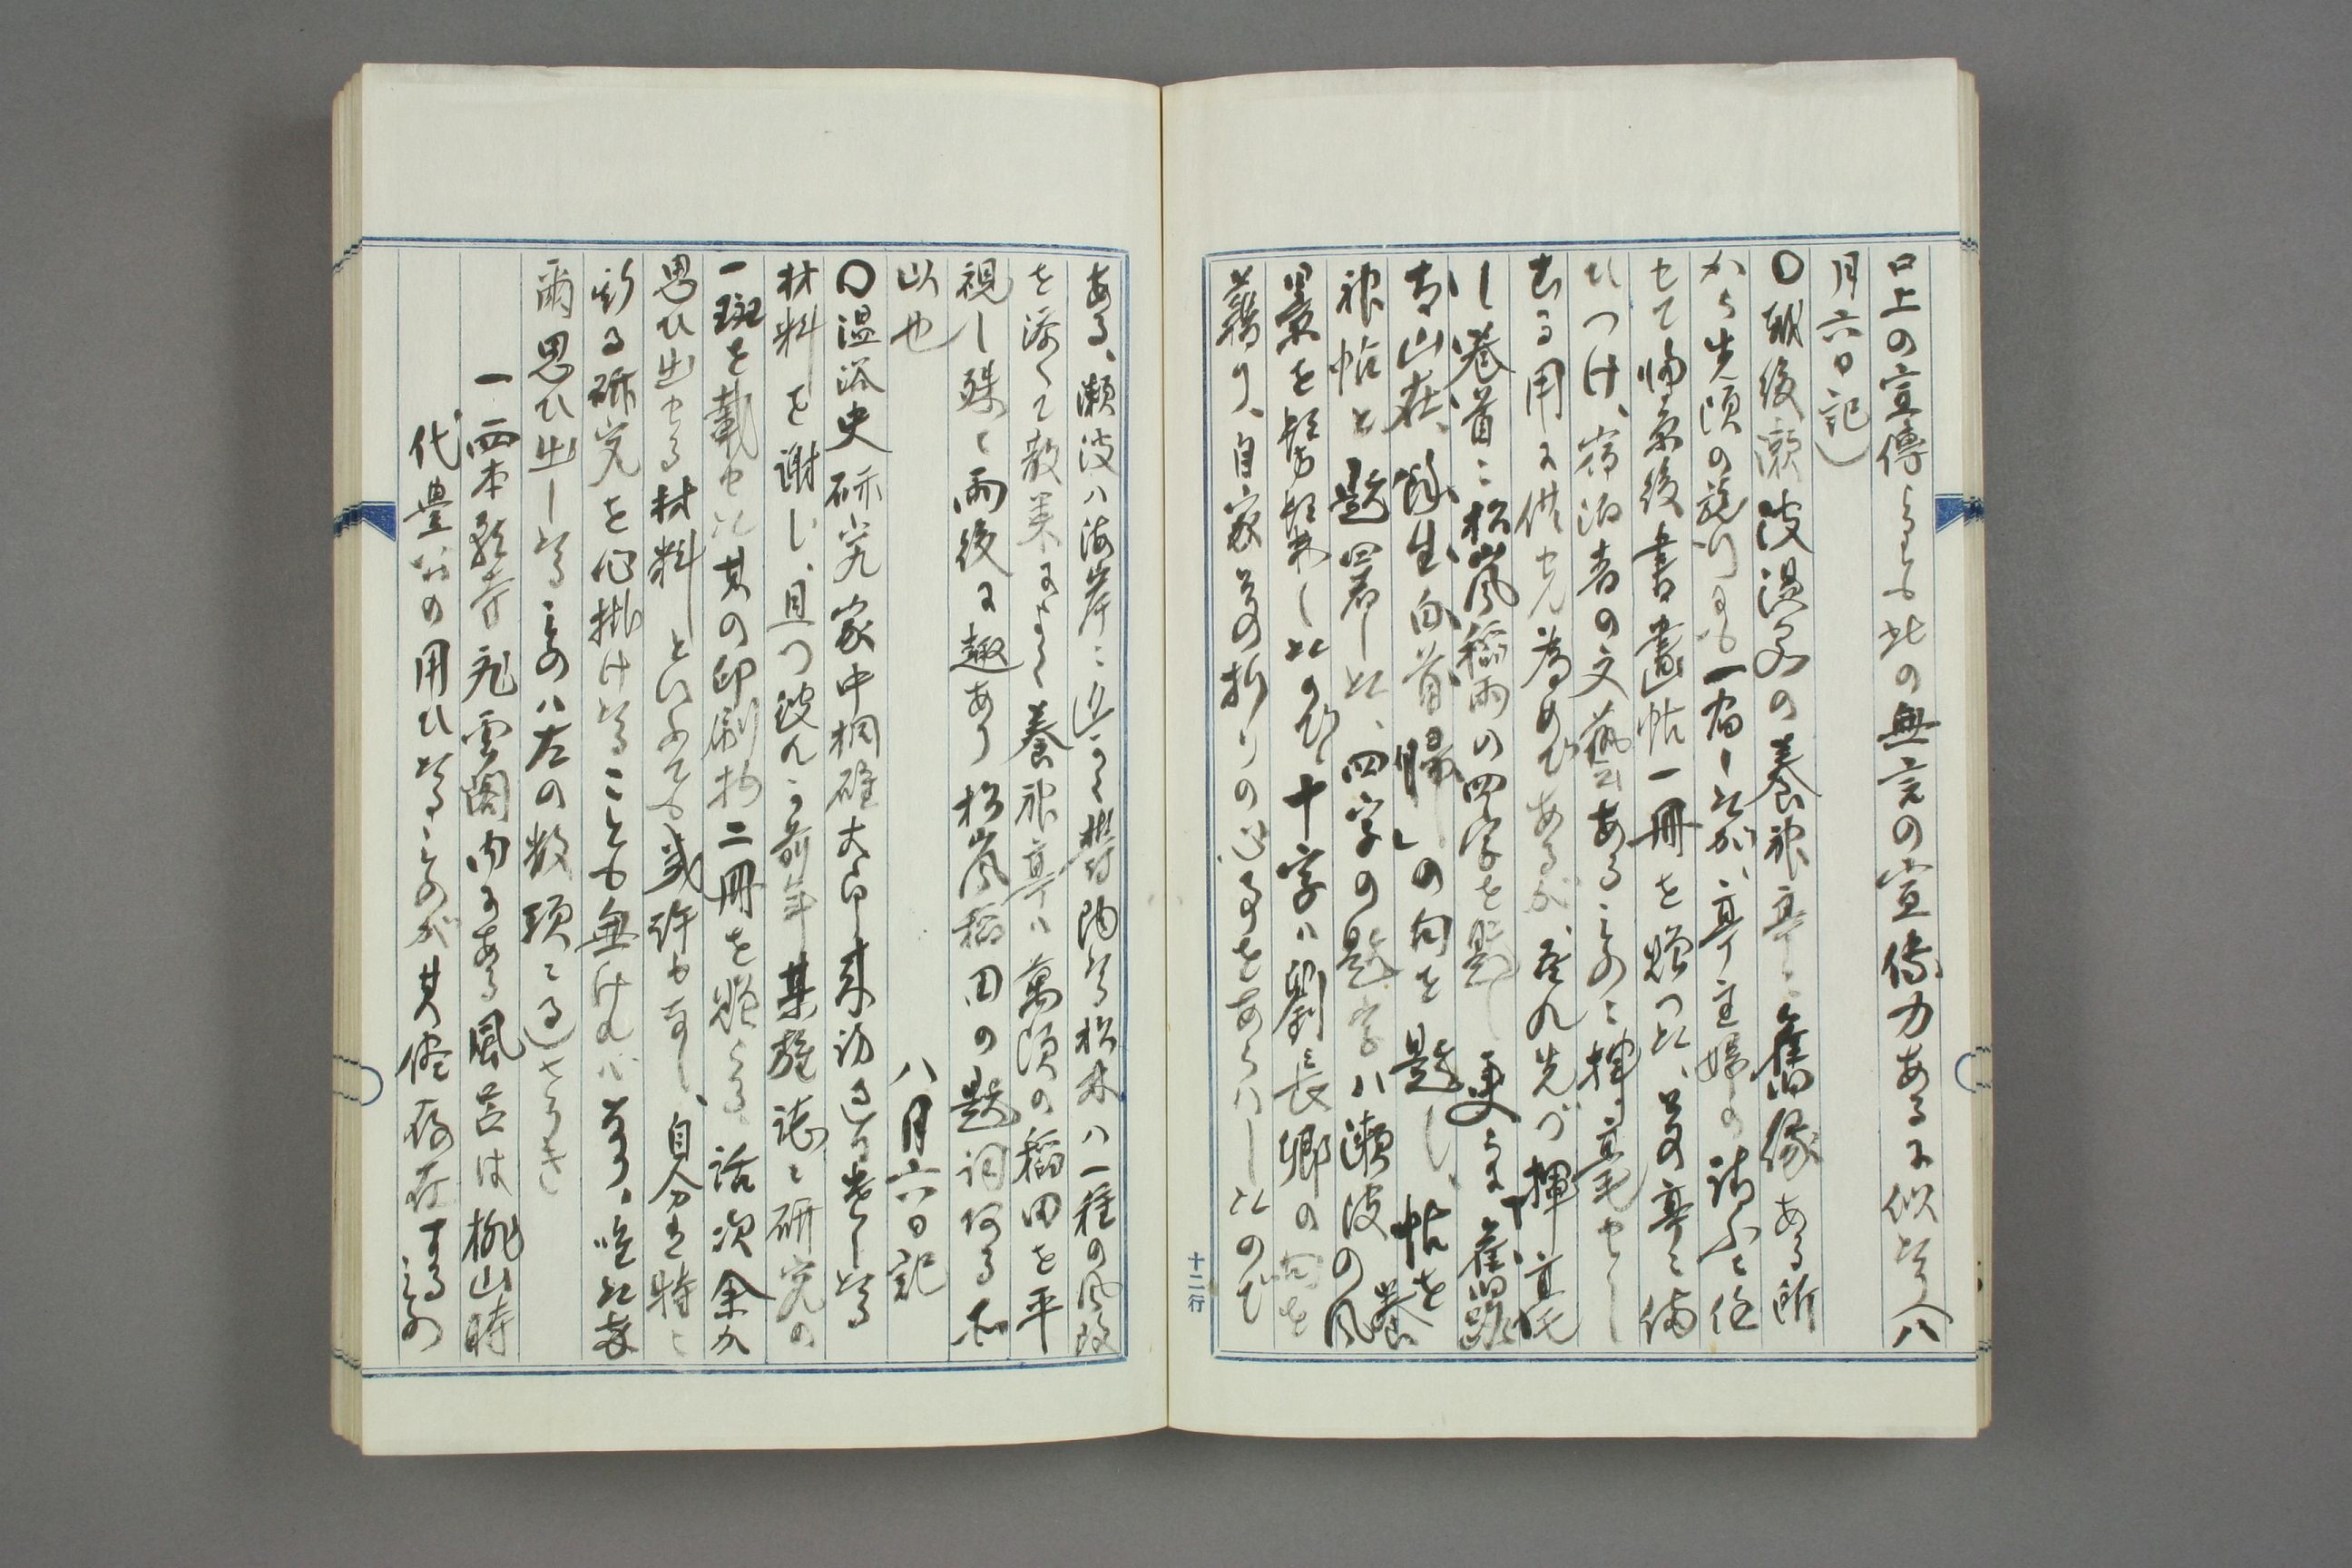 口上の宣傳よりも此の無言の宣傳力あるに似たり(八
月六日記)
〇越後瀬波温泉の養神亭に舊縁ある所
から先頃の旅行にも一宿したが、亭主婦の請ふに任
せて帰京後書畫帖一冊を贈つた、其の亭に備
ひつけ、宿泊者の文藝あるものに揮毫せし
むる用に供せん為めであるが、吾れ先づ揮毫
し巻首に松嵐稲雨の四字を題し更らに舊蹤
青山在、餘生白首歸、の句を題し、帖を養
神帖と題署した、四字の題字ハ瀬波の風
景を髣髴した、の十字ハ劉長卿の句を
藉り、自家其の折りの心事をあらハしたので
ある、瀬波ハ海岸に近く樹陶たる松林ハ一種の風致
を添へて散策によく養神亭ハ萬頃の稲田を平
視し殊に雨後に趣あり松嵐稲田の題詞ある所
以也
八月六日記
〇温浴史研究家中桐確太郎来訪過日差したる
材料を謝し、且つ彼れが前年某雑誌に研究の
一斑を載せた其の印刷物二冊を贈らる、話次余が
思ひ出せる材料といふても幾許もなし、自分も特に
斯る研究を心掛けたることも無けれバなり、唯た率
爾思ひ出したるものハ左の数項に過ぎさりき
一 西本願寺飛雲閣内にある風呂は桃山時
代豊公の用ひたるものが其侭存在するもの
十二行